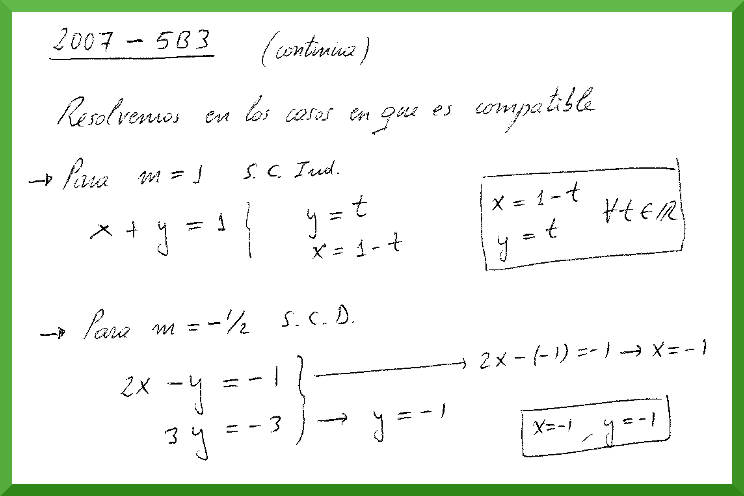 2007 - 5B3 (continúa)
Resolvemos en los casos en que es compatible
→ Para m = 1 S. C. Ind.
x + y = 1 } y = t
x = 1 - t
x = 1 - t
y = t ∀t ∈ ℝ
→ Para m = -1/2 S. C. D.
2x - y = -1 } → 2x - (-1) = -1 → x = -1
3y = -3 } → y = -1
x = -1, y = -1